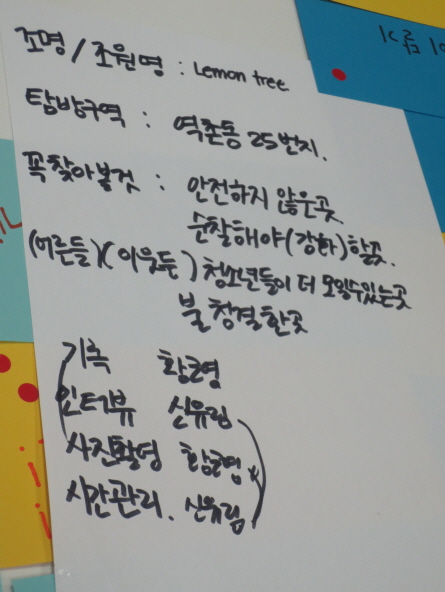 조명 / 조원명 : Lemon tree
탐방구역 : 역촌동 25번지.
꼭 찾아볼것 : 안전하지 않은곳
순찰해야(강화)할곳.
(어른들)(이웃들) 청소년들이 더 모일수있는곳
불청결한곳
기록 황은영
인터뷰 신유림
사진촬영 황은영
시간관리. 신유림